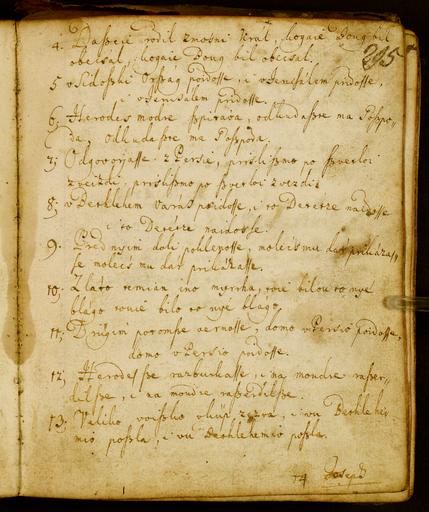 295
4. Dasseie rodil zmosni Kral, kogaie Boug bil
obeczal, kogaie Boug bil obeczal.
5 vSidosski Orssag poidosse, i vJerusalem pridosse,
vJerusalem pridosse.
6; Herodes modre sspirava, odkudasste ma Posspo-
da, odkudasste ma Posspoda.
7; Odgovorjasse: z Persie, prisslissmo po ssvetloi
zveizdi, prisslissmo po ssvetloi zvezdi.
8; vBethlehem Varas poidosse, i to Detetze naidosse
i to Detetze naidosse.
9. Pred nyim doli poklenosse, molecs mu dar prikazas-
se molecs mu dar prikazasse.
10; Zlato temian ino myrrha, toie bilou to nyé
blágo touie bilo to nyé blágo.
11; Drugim potompe vernosse, domo vPersio poidosse,
domo vPersio poidosse.
12; Herodes sse razburkasse, i na mondre rasser-
dil sse, i na mondre rasszrdil sse.
13. Veliko voisko vkup zezva, i vu Bethlehe-
mio possla, i vu Bethlehemio possla.
14 Joseph